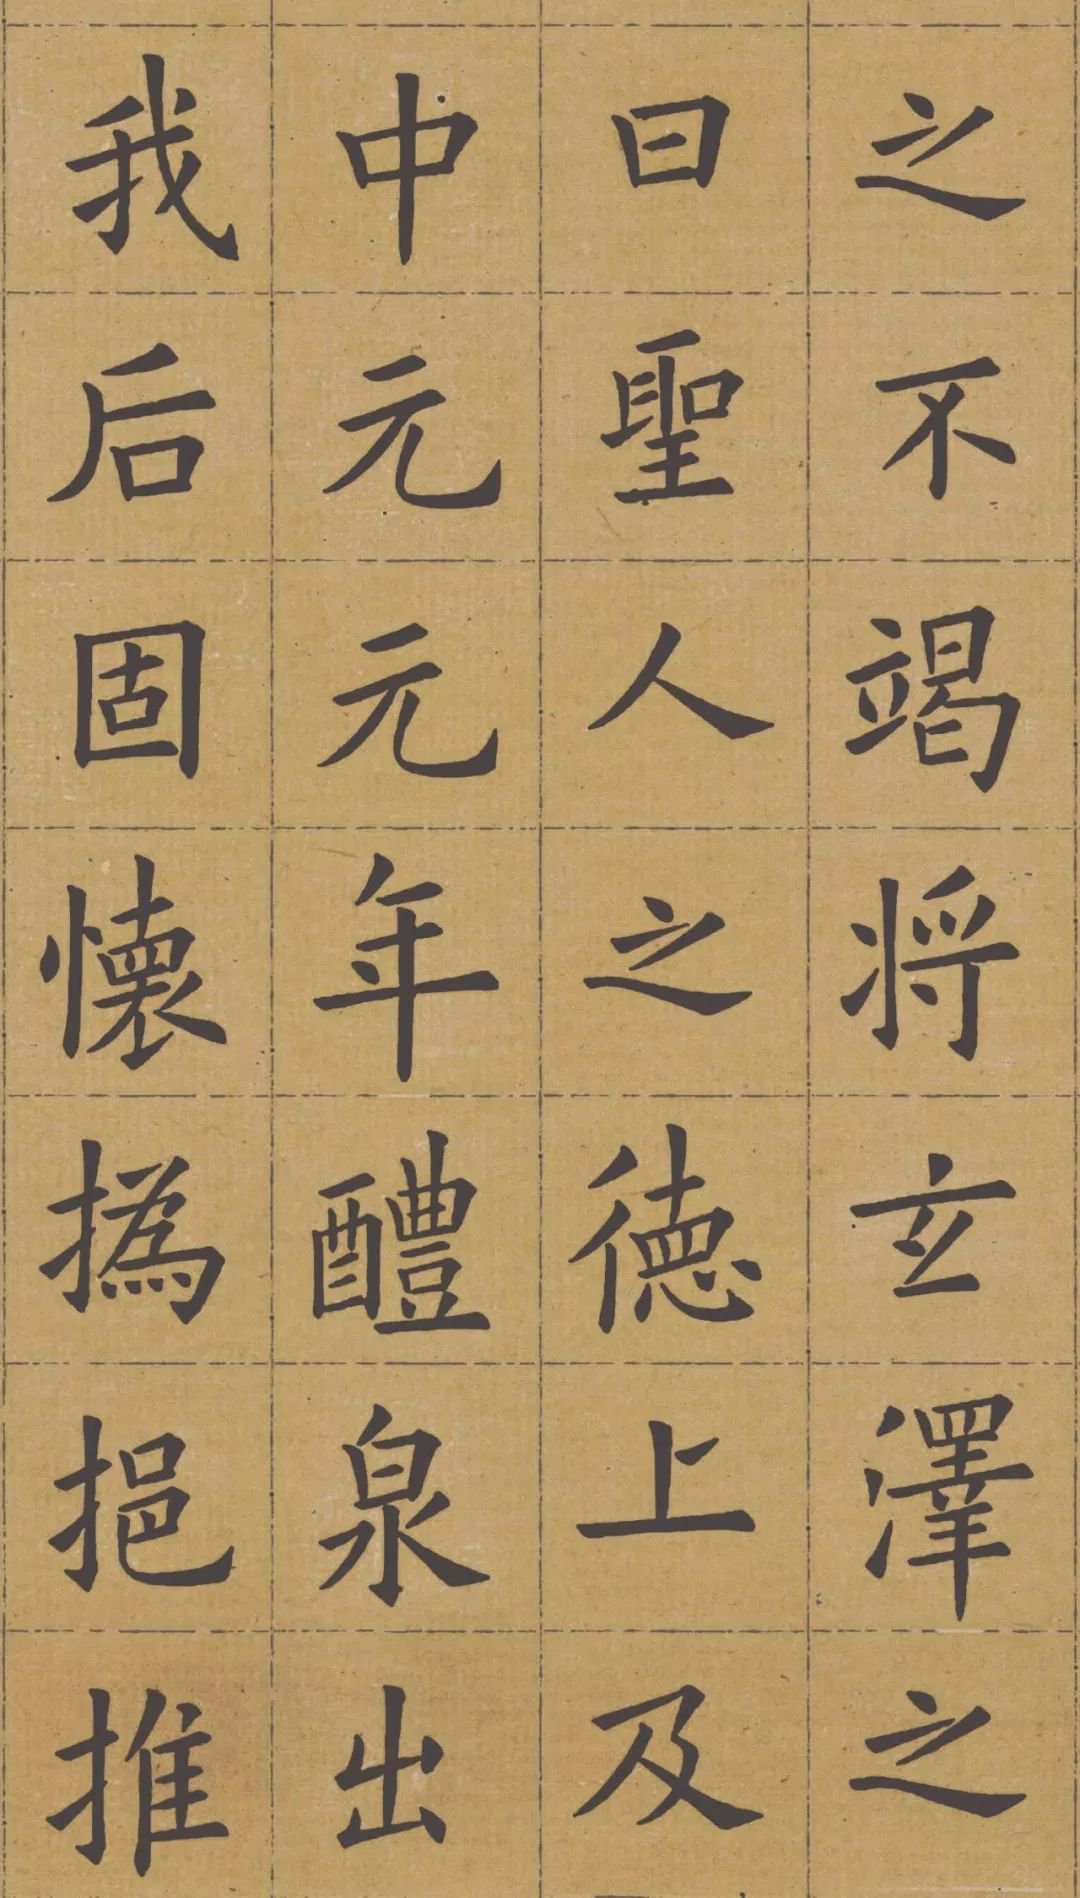 之不竭将玄澤之
曰聖人之德上及
中元元年醴泉出
我后固懷撝挹推